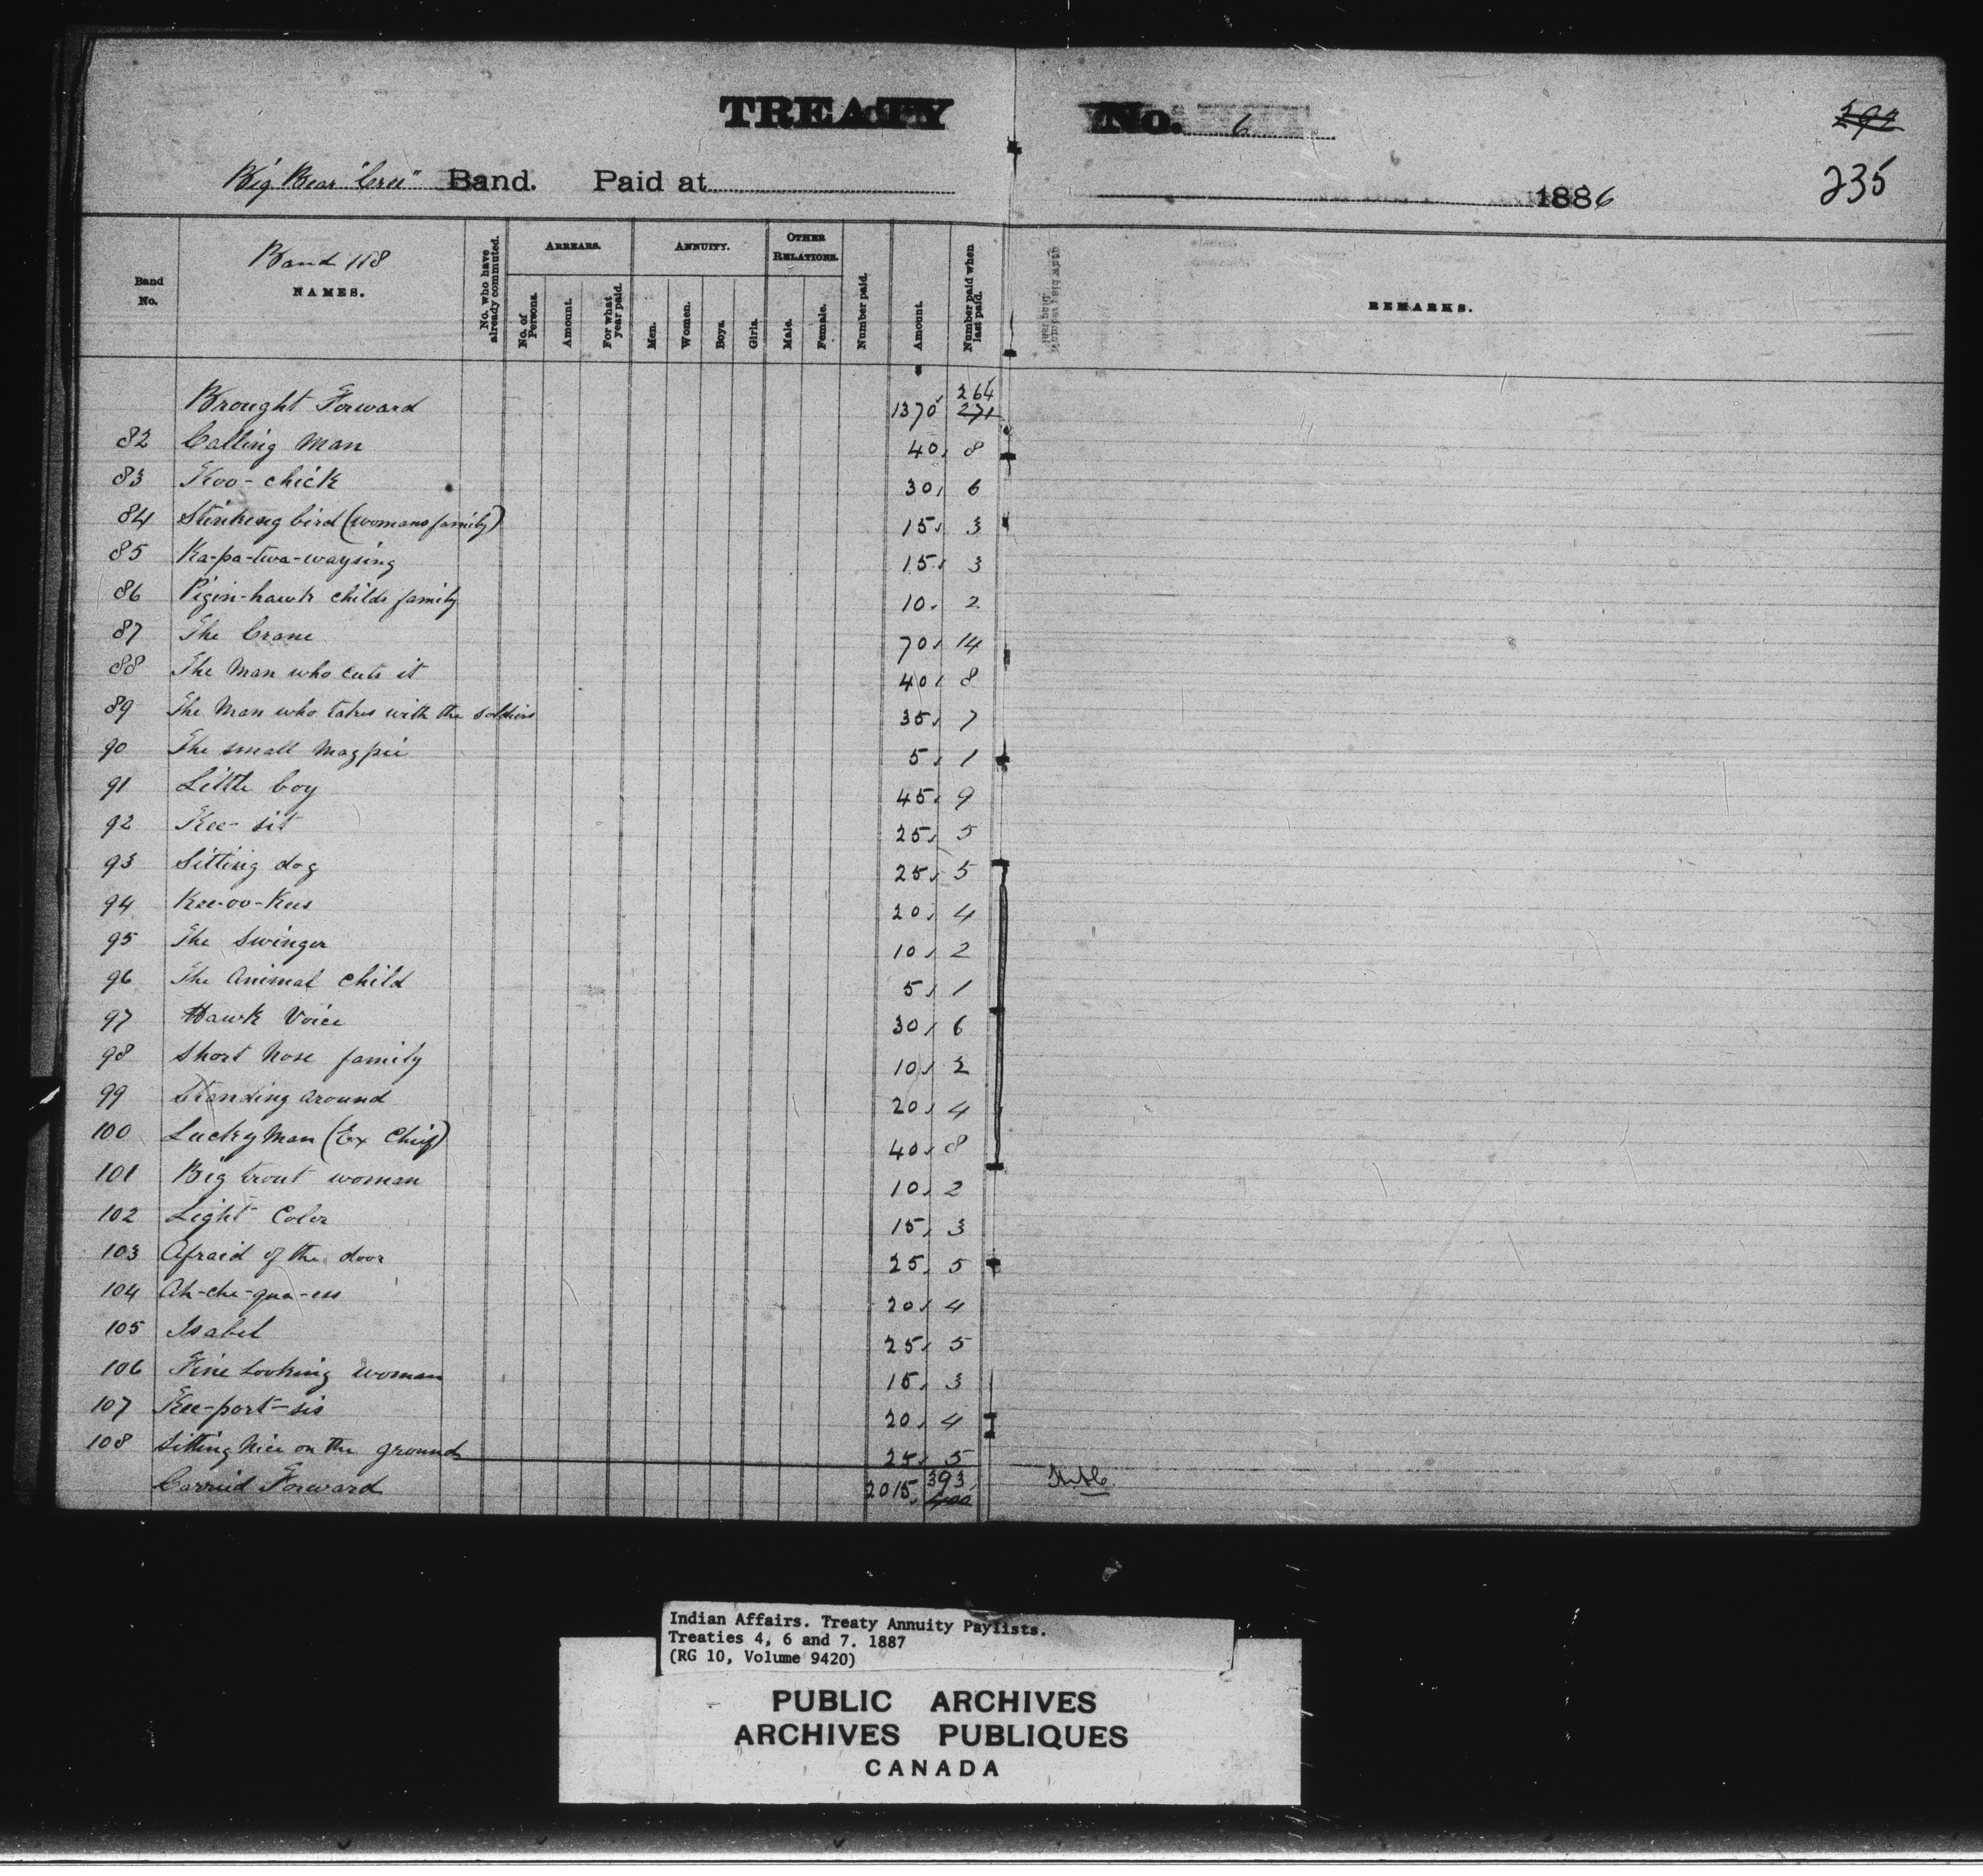 TREATY No. 6
292
Big Bear "Cree" Band. Paid at 1886
235
Band 118
Band No.
NAMES.
No. who have already commuted.
ARREARS.
No. of Persons.
Amount.
For what year paid.
ANNUITY.
Men.
Women.
Boys.
Girls.
OTHER RELATIONS.
Male.
Female.
Number paid.
Amount.
Number paid when last paid.
REMARKS.
Brought Forward 1370 264 271
82 Calling Man 40 8
83 Koo-chick 30 6
84 Stinking bird (womans family) 15 3
85 Ka-pa-twa-waysing 15 3
86 Pigin-hawk childs family 10 2
87 The Crane 70 14
88 The Man who cuts it 40 8
89 The Man who takes with the soldiers 35 7
90 The small Magpie 5 1
91 Little boy 45 9
92 Kee-sit 25 5
93 Sitting dog 25 5
94 Kee-oo-Kees 20 4
95 The Swinger 10 2
96 The Animal Child 5 1
97 Hawk Voice 30 6
98 Short Nose family 10 2
99 Standing around 20 4
100 Lucky Man (Ex Chief) 40 8
101 Big trout woman 10 2
102 Light Color 15 3
103 Afraid of the door 25 5
104 Ah-che-qua-ess 20 4
105 Isabel 25 5
106 Fine Looking Woman 15 3
107 Kee-port-sis 20 4
108 Sitting Nice on the ground 25 5
Carried Forward 2015 393 400
Indian Affairs. Treaty Annuity Paylists.
Treaties 4, 6 and 7. 1887
(RG 10, Volume 9420)
PUBLIC ARCHIVES
ARCHIVES PUBLIQUES
CANADA